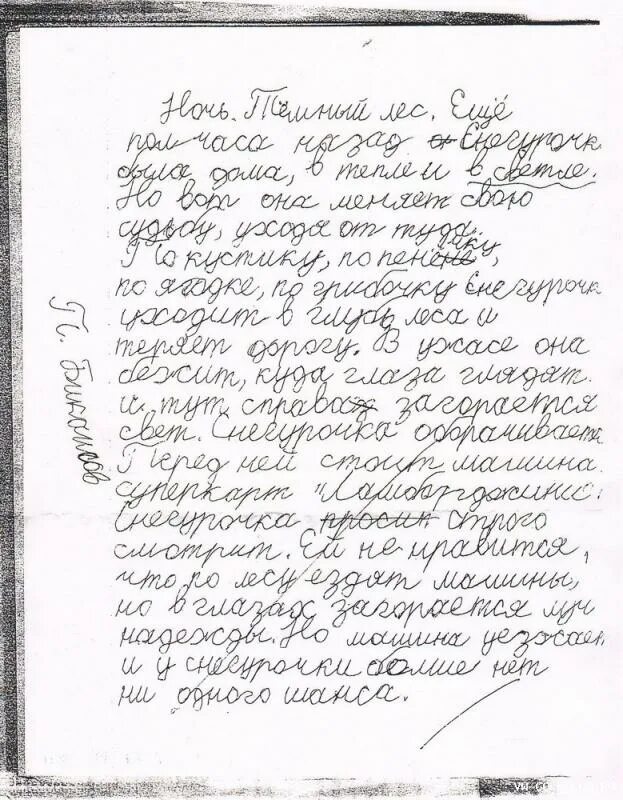 Ночь. Тёмный лес. Ещё
пол часа назад Снегурочк
была дома, в тепле и в светле.
Но вот она меняет свою
судьбу, уходя от туда.
По кустику, по пенёчку,
по ягодке, по грибочку Снегурочк
уходит в глубь леса и
теряет дорогу. В ужасе она
бежит, куда глаза глядят
и тут справа загорается
свет. Снегурочка оборачивается
Перед ней стоит машина
суперкарт "Ламоборджинио.
Снегурочка просит строго
смотрит. Ей не нравится,
что по лесу ездят машины,
но в глазах загорается луч
надежды. Но машина уезжает
и у снегурочки больше нет
ни одного шанса.
П. Бикансов